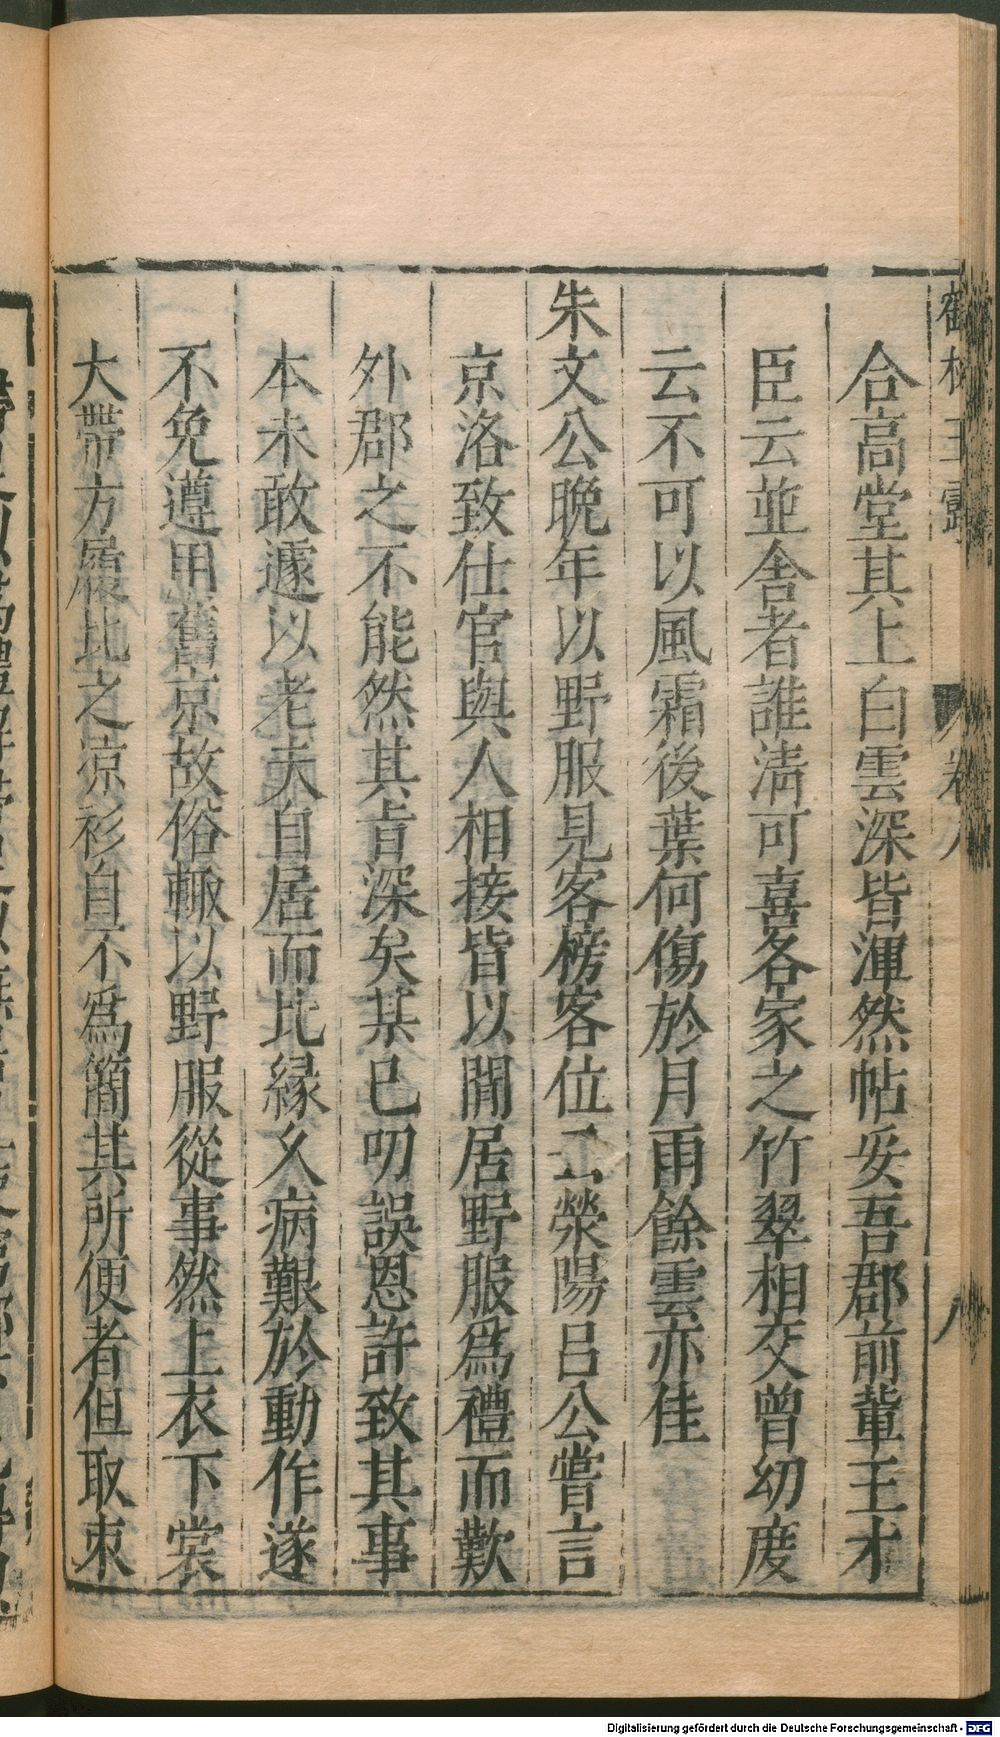 合高堂其上白雲深皆渾然帖妥吾郡前輩王才
臣云並舍者誰淸可喜各家之竹翠相交曾幼度
云不可以風霜後葉何傷於月雨餘雲亦佳
朱文公晚年以野服見客榜客位云滎陽呂公嘗言
京洛致仕官與人相接皆以閒居野服爲禮而歎
外郡之不能然其旨深矣某已叨誤恩許致其事
本未敢遽以老夫自居而比緣久病艱於動作遂
不免遵用舊京故俗輙以野服從事然上衣下裳
大帶方履比之凉衫自不爲簡其所便者但取束
卷八
八
Digitalisierung gefördert durch die Deutsche Forschungsgemeinschaft - DFG